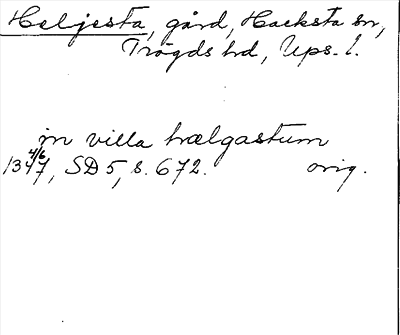 Heljesta, gård, Hacksta sn,
Trögds hd, Ups. l.
in villa hælgastum
1347 4/6, SD 5, s. 672. orig.